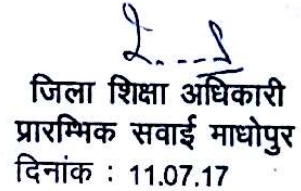 जिला शिक्षा अधिकारी
प्रारम्भिक सवाई माधोपुर
दिनांक : 11.07.17